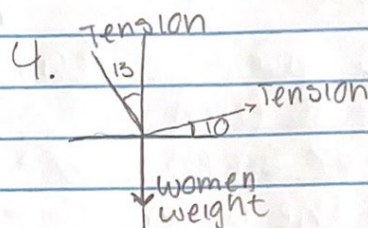 Tension
4.
13
Tension
10
women
weight